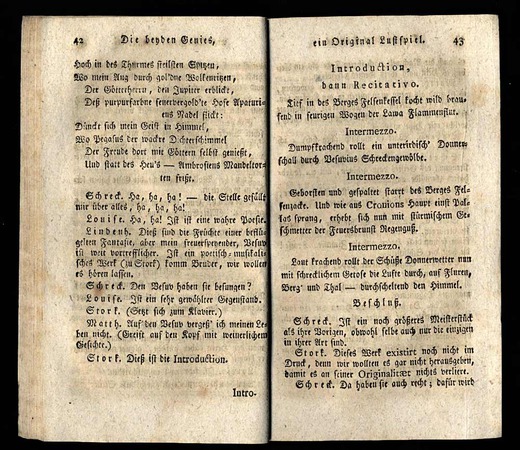 42 Die beyden Genies,
Hoch in des Thurmes steilsten Spitzen,
Wo mein Aug durch gol'dne Wolkenritzen,
Der Götterherrn, den Jupiter erblickt,
Deß purpurfarbne feuerbergold'te Hose Apaturi-
ens Nadel stickt:
Dünckt sich mein Geist in Himmel,
Wo Pegasus der wackre Dichterschimmel
Der Freude dort mit Göttern selbst genießt,
Und statt des Heu's — Ambrosiens Mandeltor-
ten frißt.
Schreck. Ha, ha, ha! — die Stelle gefällt
mir über alles, ha, ha, ha!
Louise. Ha, ha! Ist ist eine wahre Poesie.
Lindenh. Dieß sind die Früchte einer beflü-
gelten Fantasie, aber mein feuerspeyender, Vesuv
ist weit vortrefflicher. Ist ein poetisch-musikali-
sches Werk (zu Stork) komm Bruder, wir wollen
es hören lassen.
Schreck. Den Vesuv haben sie besungen?
Louise. Ist ein sehr gewählter Gegenstand.
Stork. (Setzt sich zum Klavier.)
Matth. Auf den Vesuv vergeß' ich meinen Le-
ben nicht. (Greift auf den Kopf mit weinerlichem
Gesichte.)
Stork. Dieß ist die Introduction.
Intro-
ein Original Lustspiel. 43
Introduction,
dann Recitativo.
Tief in des Berges Felsenkessel kocht wild brau-
send in feurigen Wogen der Lawa Flammenflut.
Intermezzo.
Dumpfkrachend rollt ein unterirdisch' Donner-
schall durch Vesuvius Schreckengewölbe.
Intermezzo.
Geborsten und gespaltet starrt des Berges Fel-
senzacke. Und wie aus Cronions Haupt einst Pal-
las sprang, erhebt sich nun mit stürmischem Ge-
schmetter der Feuersbrunst Regenguß.
Intermezzo.
Laut krachend rollt der Schüße Donnerwetter nun
mit schrecklichem Getose die Lufte durch, auf Fluren,
Berg' und Thal — durchscheltend den Himmel.
Beschluß.
Schreck. Ist ein noch größeres Meisterstück
als ihre Vorigen, obwohl selbe auch nur die einzigen
in ihrer Art sind.
Stork. Dieses Werk existirt noch nicht im
Druck, denn wir wollten es gar nicht herausgeben,
damit es an seiner Originalitær nichts verliere.
Schreck. Da haben sie auch recht; dafür wird